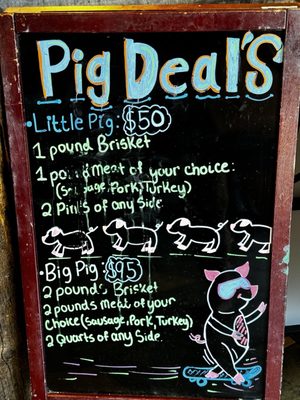 Pig Deal's
• Little Pig: $50
1 pound Brisket
1 pound meat of your choice:
(Sausage, Pork, Turkey)
2 Pints of any Side
• Big Pig: $95
2 pounds Brisket
2 pounds meat of your
choice (sausage, Pork, Turkey)
2 Quarts of any Side.